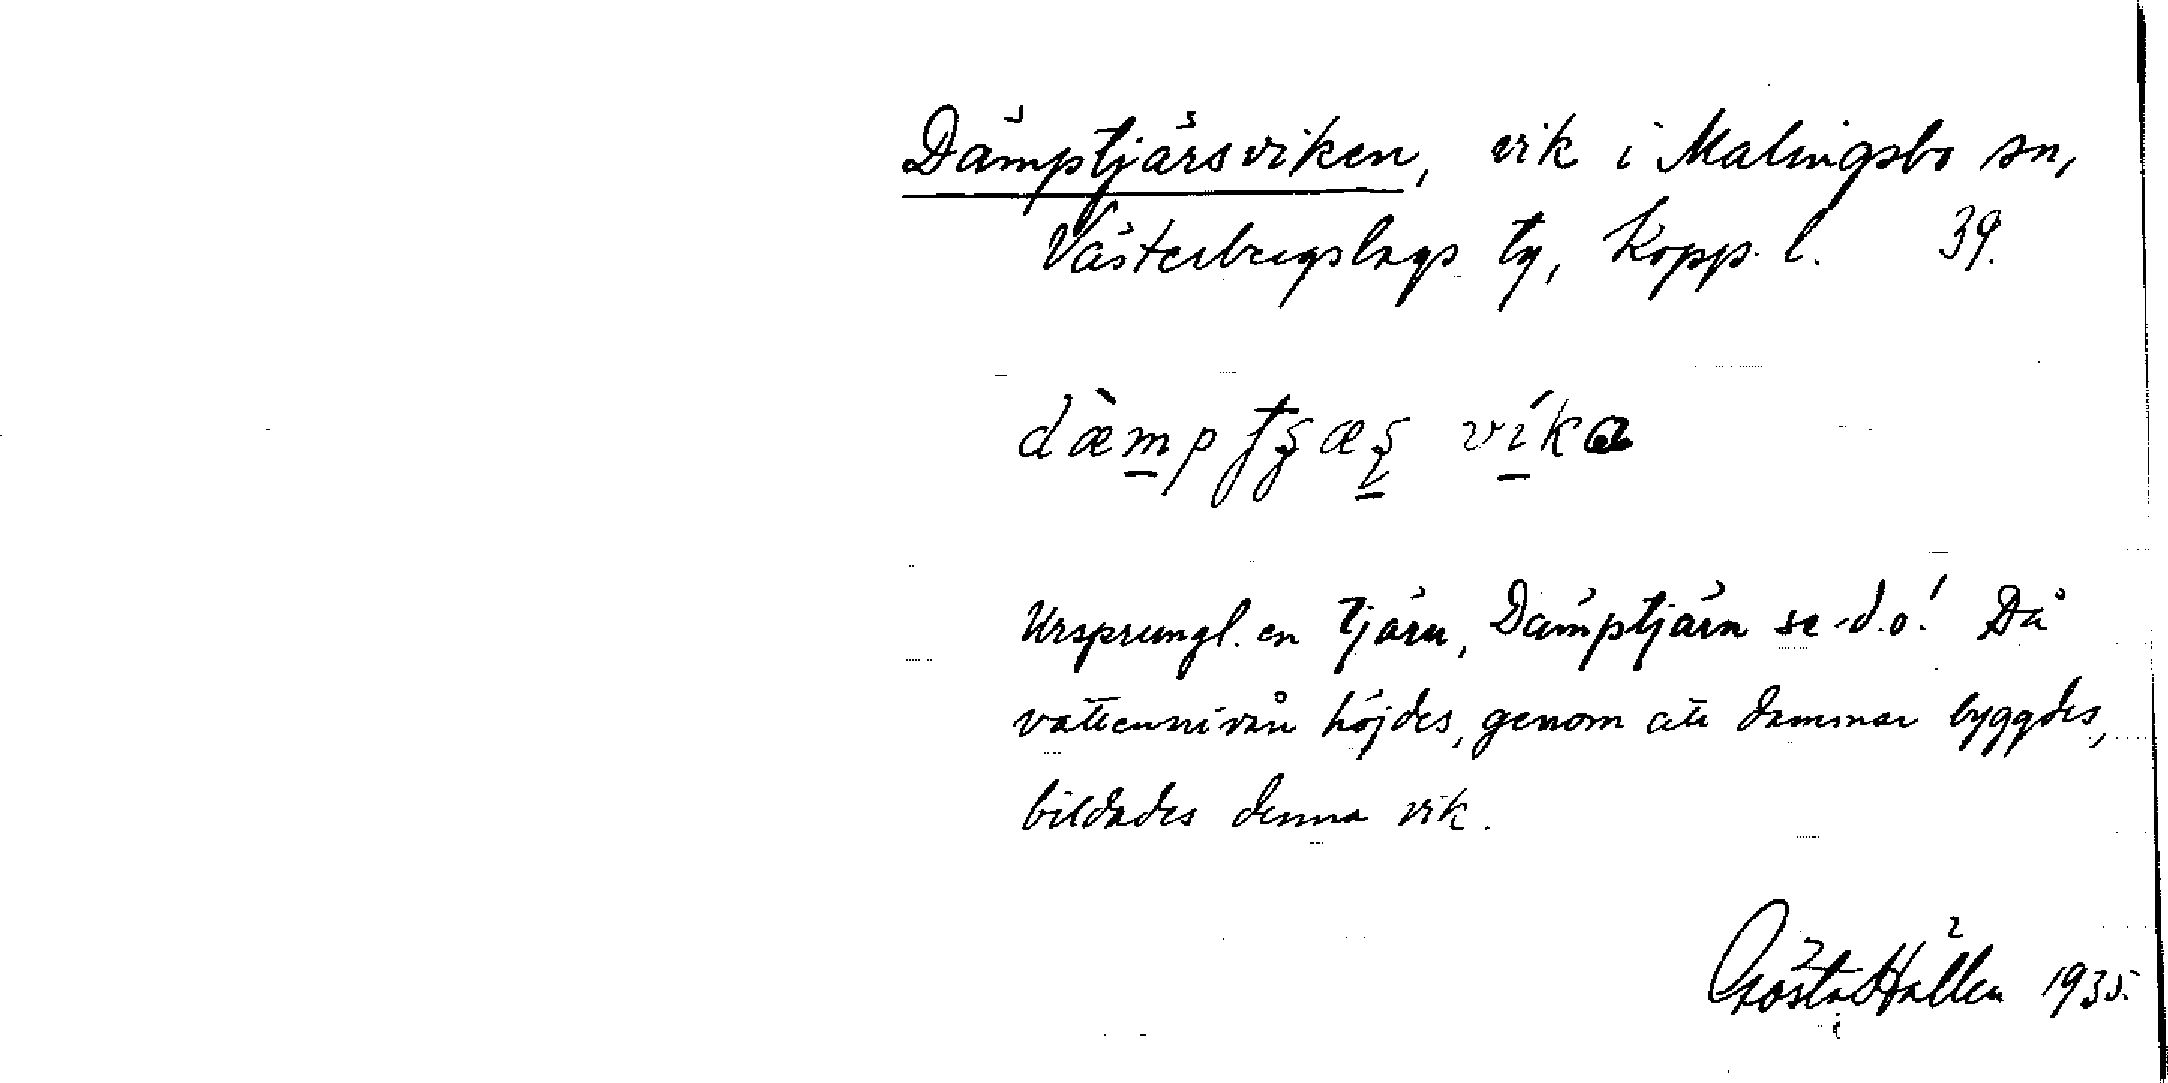 Dämptjärsviken, vik i Malingsbo sn,
Västerbergslags tg, Kopp. l. 39.
vika
Ursprungl. en tjärn, Dämptjärn se d.o! Då
vattennivån höjdes, genom att dammar byggdes,
bildades denna vik.
Gösta Hällen 1935.